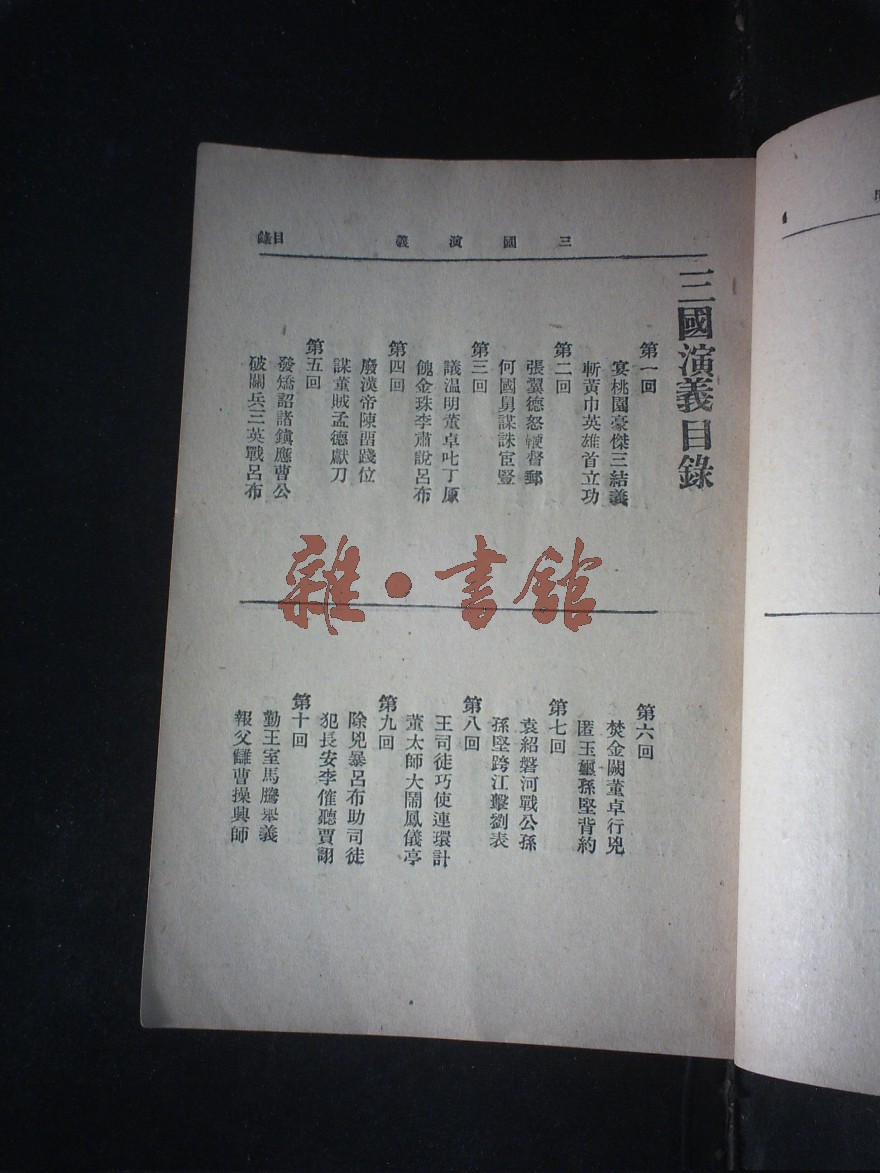 三國演義 目錄
三國演義目錄
第一回
宴桃園豪傑三結義
斬黃巾英雄首立功
第二回
張翼德怒鞭督郵
何國舅謀誅宦豎
第三回
議温明董卓叱丁原
餽金珠李肅說呂布
第四回
廢漢帝陳留踐位
謀董賊孟德獻刀
第五回
發矯詔諸鎮應曹公
破關兵三英戰呂布
第六回
焚金闕董卓行兇
匿玉璽孫堅背約
第七回
袁紹磐河戰公孫
孫堅跨江擊劉表
第八回
王司徒巧使連環計
董太師大鬧鳳儀亭
第九回
除兇暴呂布助司徒
犯長安李傕聽賈詡
第十回
勤王室馬騰舉義
報父讎曹操興師
雜·書館